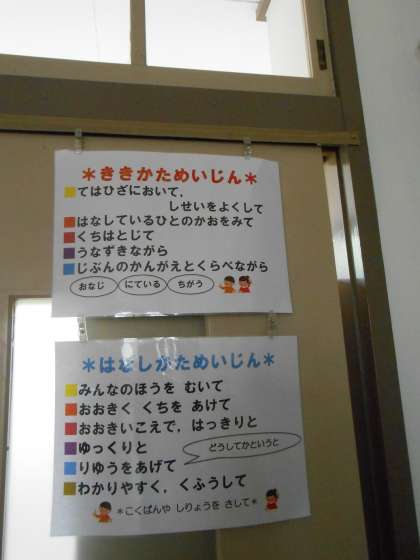 ＊ききかためいじん＊
てはひざにおいて，
しせいをよくして
はなしているひとのかおをみて
くちはとじて
うなずきながら
じぶんのかんがえとくらべながら
おなじ にている ちがう
＊はなしかためいじん＊
みんなのほうを むいて
おおきく くちを あけて
おおきいこえで，はっきりと
ゆっくりと
どうしてかというと
りゆうをあげて
わかりやすく，くふうして
＊こくばんや しりょうを さして＊